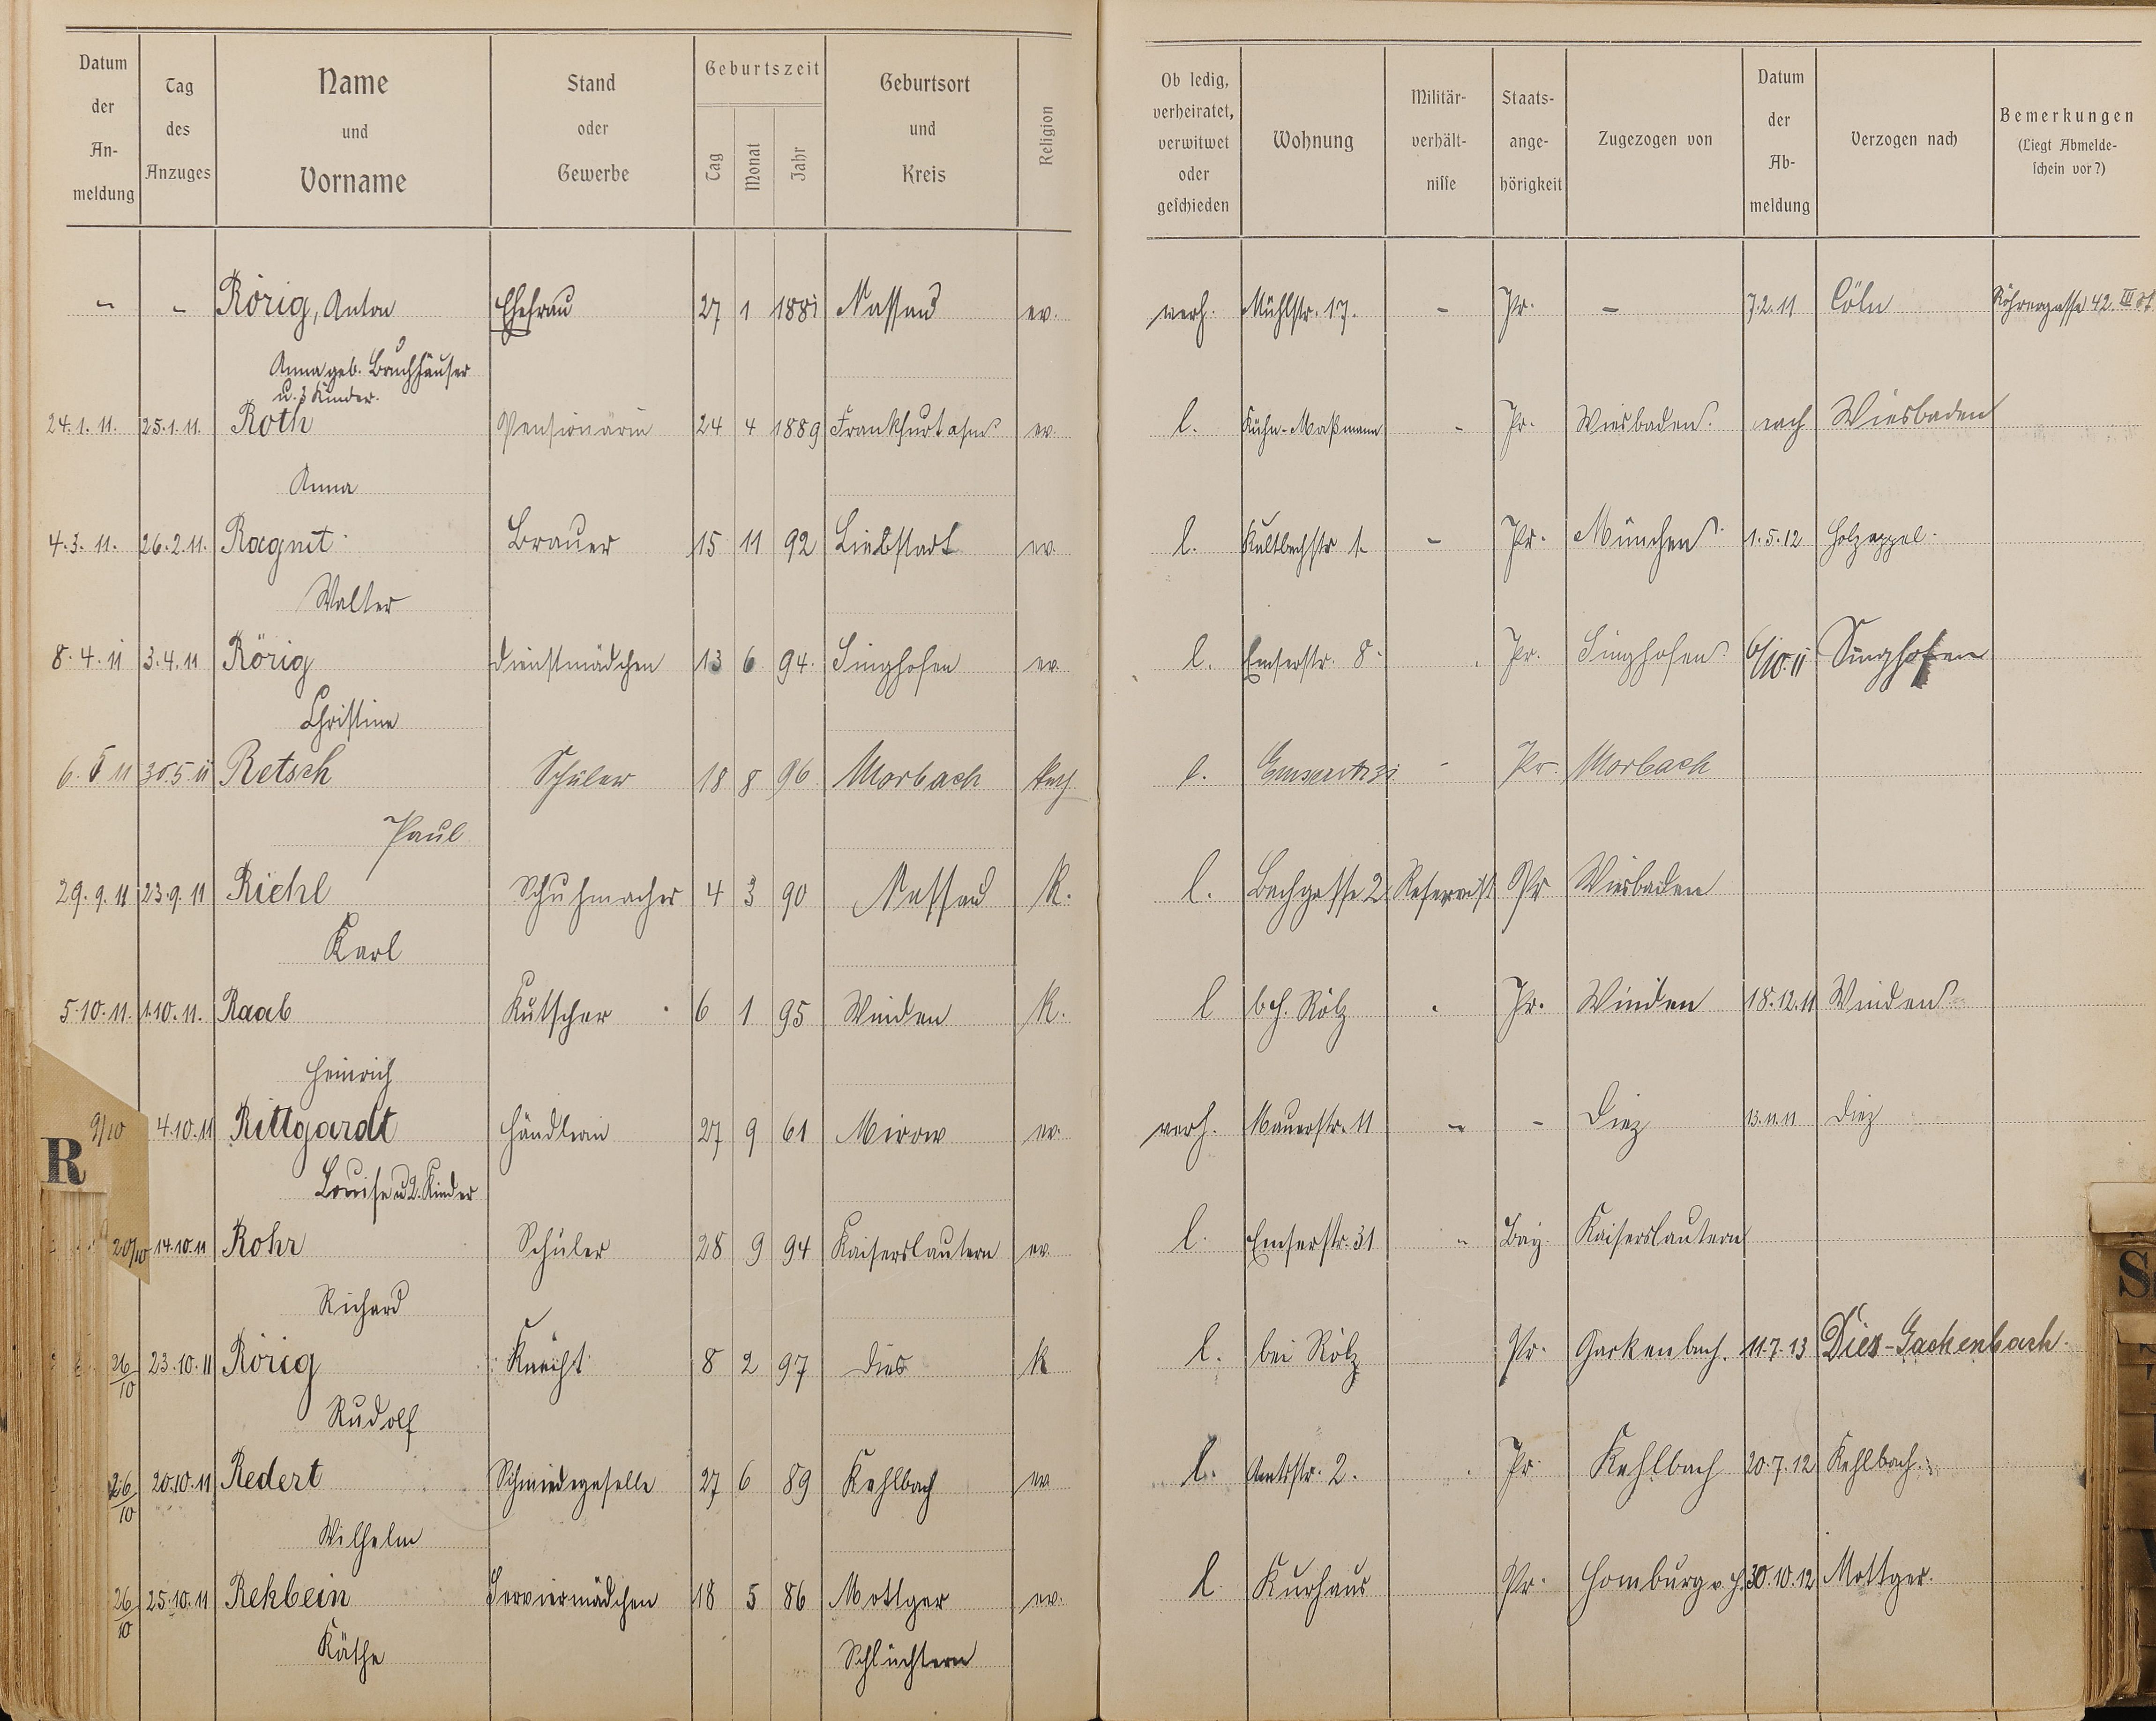 Datum der An-meldung | Tag des Anzuges | Name und Vorname | Stand oder Gewerbe | Geburtszeit Tag Monat Jahr | Geburtsort und Kreis | Religion | Ob ledig, verheiratet, verwitwet oder geschieden | Wohnung | Militär-verhält-nisse | Staats-ange-hörigkeit | Zugezogen von | Datum der Ab-meldung | Verzogen nach | Bemerkungen (Liegt Abmelde-schein vor?)
- - Rörig, Anton Ehefrau 27 1 1881 Nassau ev. verh. Mühlstr. 17. - Pr. - 7.2.11 Cöln 42. III
Anna geb. Bruchhäuser
u. 3 Kinder.
24.1.11. 25.1.11. Roth Pensionärin 24 4 1889 Frankfurt ev. l. Kuhn-Maßmann - Pr. Wiesbaden. nach Wiesbaden
Anna
4.3.11. 26.2.11. Ragnit Brauer 15 11 92 Liebstadt ev. l. Kaltbachstr 1. - Pr. München 1.5.12 Holzappel.
Walter
8.4.11 3.4.11 Rörig Dienstmädchen 13 6 94. Singhofen ev. l. Emserstr. 8. Pr. Singhofen 6/10.11 Singhofen
Christine
6. 11 30.5.11 Retsch Schüler 18 8 96 Morbach kath l. Emserstr 31 - Pr. Morbach
Paul
29.9.11 23.9.11 Riehl Schuhmacher 4 3 90 Nassau K. l. Bachgasse 2 Reservist Pr Wiesbaden
Karl
5.10.11. 1.10.11. Raab Kutscher 6 1 95 Winden K. l bch. Rölz Pr. Winden 18.12.11 Winden
Heinrich
9/10 4.10.11 Rittgardt Händlerin 27 9 61 Mirow ev. verh. Mauerstr. 11 - - Diez 13.11.11 Diez
R
Louise u 2. Kinder
20/10 14.10.11 Rohr Schüler 28 9 94 Kaiserslautern ev. l. Emserstr. 31 " Bay. Kaiserslautern
Richard
S
26/10 23.10.11 Rörig Knecht 8 2 97 Dies K l. bei Rölz Pr. Gackenbach. 11.7.13 Dies-Gackenbach.
Rudolf
26/10 20.10.11 Redert Schmiedegeselle 27 6 89 Kehlbach ev l. Amtsstr. 2. Pr. Kehlbach 20.7.12 Kehlbach.
Wilhelm
26/10 25.10.11 Rehbein Serviermädchen 18 5 86 Mottger ev. l. Kurhaus Pr. Homburg v. H. 30.10.12 Mottger.
Käthe Schlüchtern